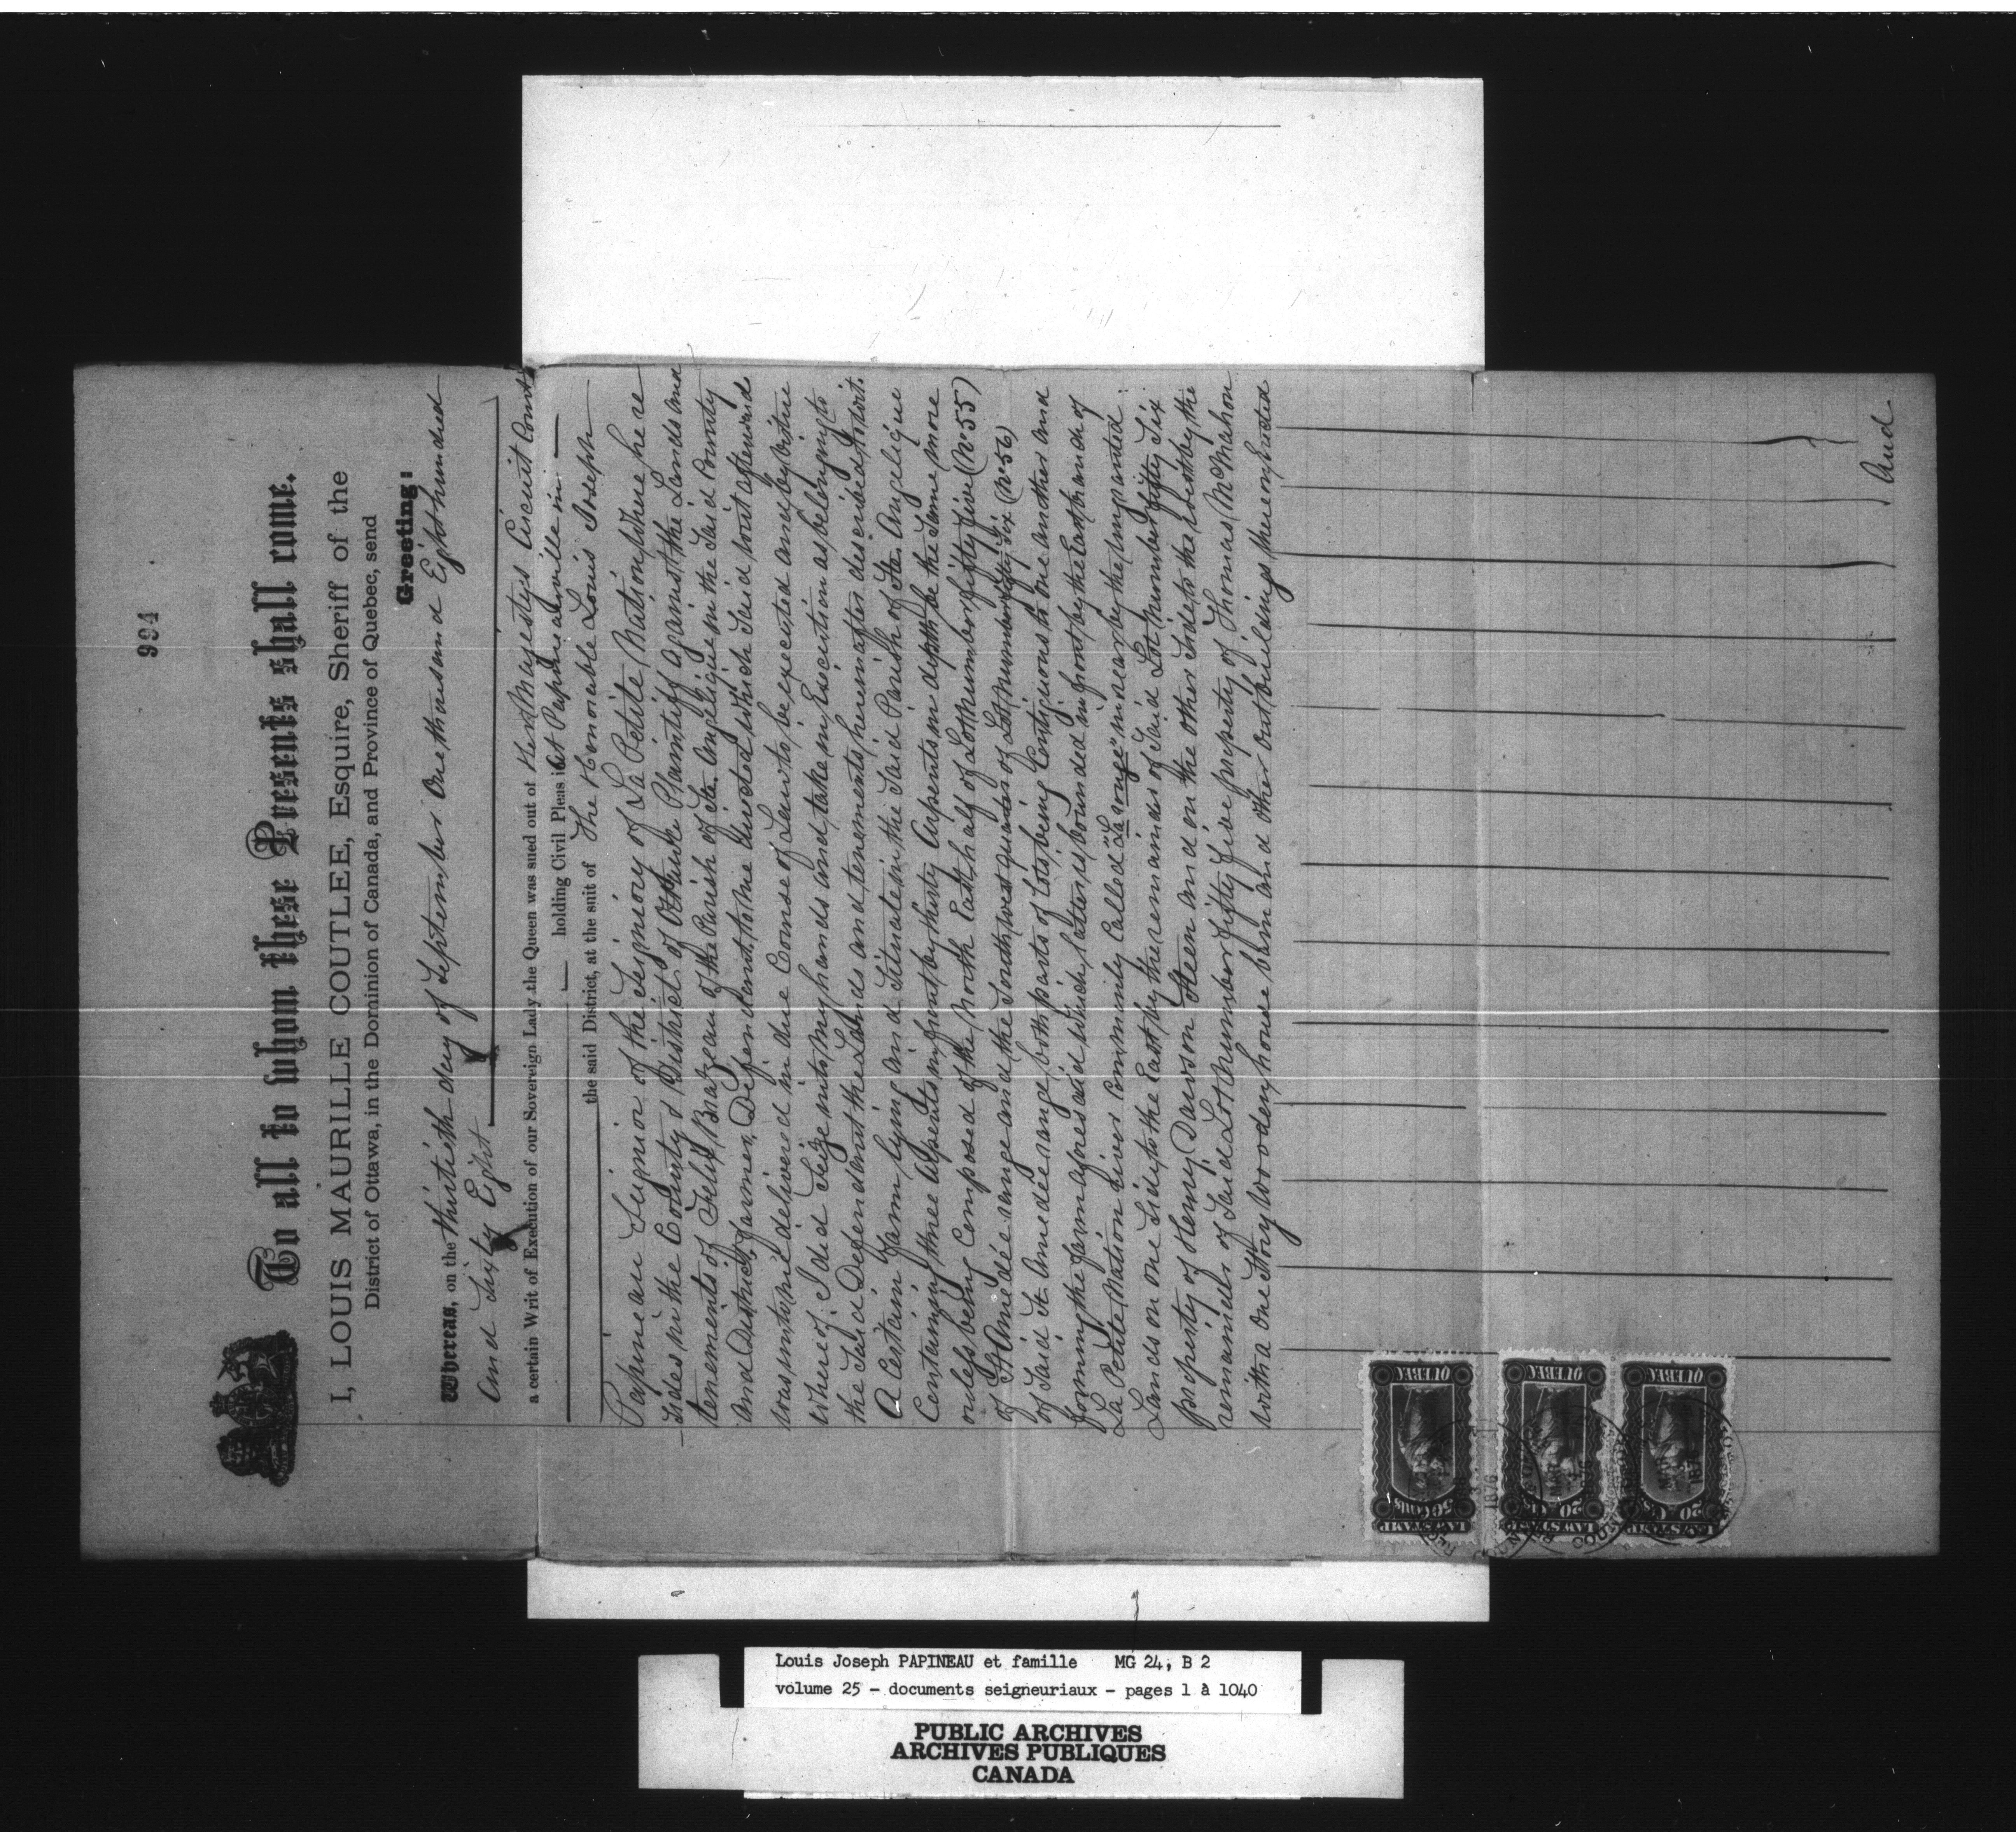 994
To all to whom these Presents shall come.
I, LOUIS MAURILLE COUTLEE, Esquire, Sheriff of the
District of Ottawa, in the Dominion of Canada, and Province of Quebec, send
Greeting:
Whereas, on the thirtieth day of September One thousand Eight hundred
and Sixty Eight
a certain Writ of Execution of our Sovereign Lady the Queen was sued out of Her Majestys Circuit Court
holding Civil Pleas at Papineauville in
the said District, at the suit of The Honorable Louis Joseph
Papineau Seignior of the Seigniory of La Petite Nation where he re
sides in the County & District of Ottawa Plaintiff against the Lands and
tenements of Felix Brazeau of the Parish of Ste. Angelique in the Said County
and District, farmer, Defendant, to me directed which Said writ afterward
was unto me delivered in due Course of Law to be executed and by virtue
whereof I did Seize into my hands and take in Execution as belonging to
the Said Defendant the Lands and tenements hereinafter described, to wit:
A Certain farm lying and Situate in the Said Parish of Ste. Angelique
Containing three Arpents in front by thirty Arpents in depth, be the Same more
or less being Composed of the North East half of Lot number fifty five (No 55)
of St Amedée range and the South west quarter of Lot number fifty Six (No 56)
of Said St. Amedée range, both parts of Lots being Contiguous to one another and
forming the farm aforesaid which latter is bounded in front by the East branch of
La Petite Nation river Commonly Called "La rouge" in rear by the Ungranted
Lands on one Side to the East by the remainder of Said Lot number fifty Six
property of Henry Dawson Steen and on the other Side to the West by the
remainder of Said Lot number fifty five property of Thomas McMahon
with a one Story wooden house barn and other outbuildings thereon Erected
And
LAW STAMP
50 CENTS
QUEBEC
LAW STAMP
20 CTS
QUEBEC
LAW STAMP
20 CTS
QUEBEC
1876
MAR
Louis Joseph PAPINEAU et famille MG 24, B 2
volume 25 - documents seigneuriaux - pages 1 à 1040
PUBLIC ARCHIVES
ARCHIVES PUBLIQUES
CANADA